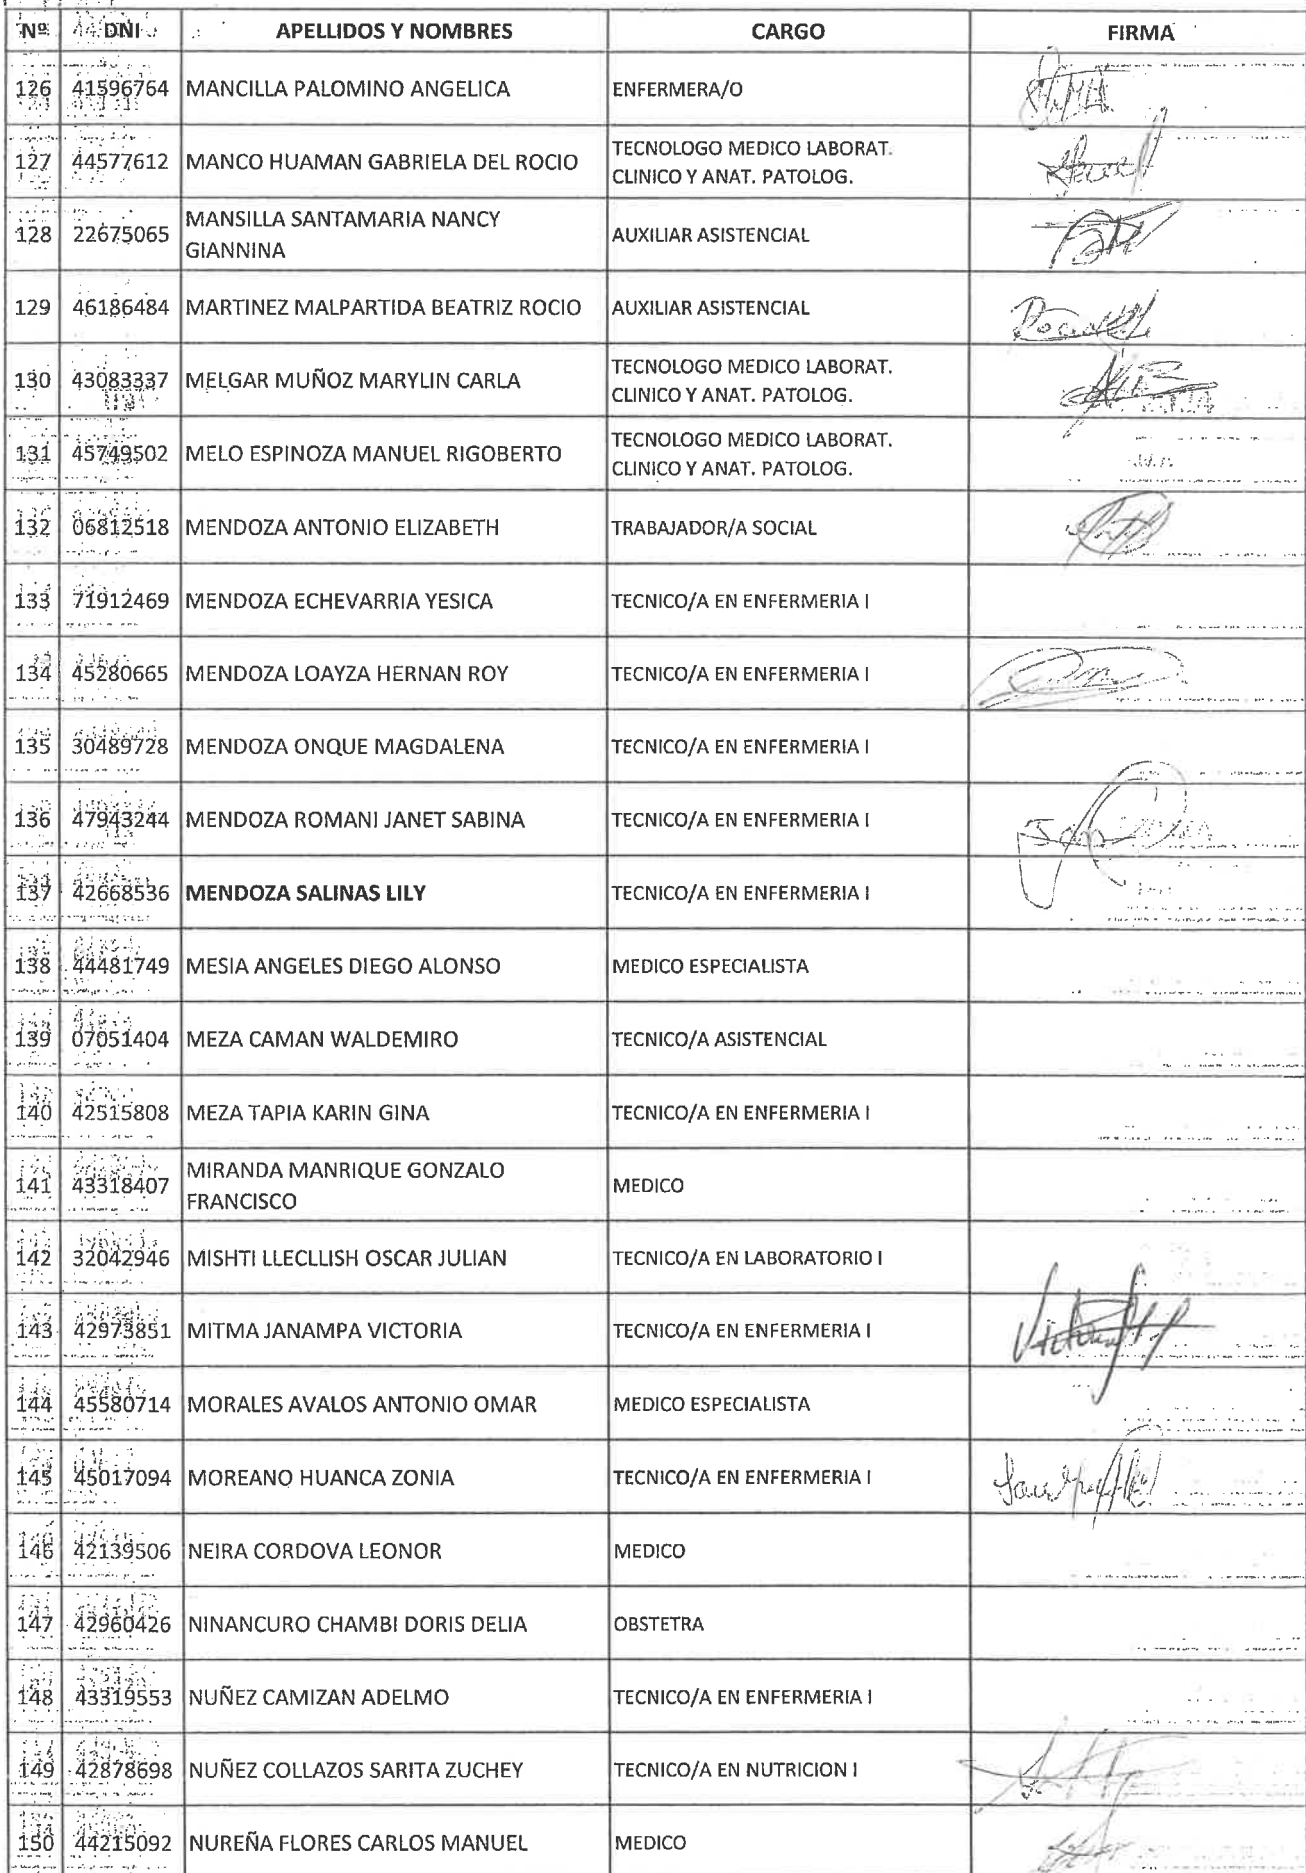 Nº DNI APELLIDOS Y NOMBRES CARGO FIRMA
126 41596764 MANCILLA PALOMINO ANGELICA ENFERMERA/O
127 44577612 MANCO HUAMAN GABRIELA DEL ROCIO TECNOLOGO MEDICO LABORAT.
CLINICO Y ANAT. PATOLOG.
128 22675065 MANSILLA SANTAMARIA NANCY
GIANNINA AUXILIAR ASISTENCIAL
129 46186484 MARTINEZ MALPARTIDA BEATRIZ ROCIO AUXILIAR ASISTENCIAL
130 43083337 MELGAR MUÑOZ MARYLIN CARLA TECNOLOGO MEDICO LABORAT.
CLINICO Y ANAT. PATOLOG.
131 45749502 MELO ESPINOZA MANUEL RIGOBERTO TECNOLOGO MEDICO LABORAT.
CLINICO Y ANAT. PATOLOG.
132 06812518 MENDOZA ANTONIO ELIZABETH TRABAJADOR/A SOCIAL
133 71912469 MENDOZA ECHEVARRIA YESICA TECNICO/A EN ENFERMERIA I
134 45280665 MENDOZA LOAYZA HERNAN ROY TECNICO/A EN ENFERMERIA I
135 30489728 MENDOZA ONQUE MAGDALENA TECNICO/A EN ENFERMERIA I
136 47943244 MENDOZA ROMANI JANET SABINA TECNICO/A EN ENFERMERIA I
137 42668536 MENDOZA SALINAS LILY TECNICO/A EN ENFERMERIA I
138 44481749 MESIA ANGELES DIEGO ALONSO MEDICO ESPECIALISTA
139 07051404 MEZA CAMAN WALDEMIRO TECNICO/A ASISTENCIAL
140 42515808 MEZA TAPIA KARIN GINA TECNICO/A EN ENFERMERIA I
141 43318407 MIRANDA MANRIQUE GONZALO
FRANCISCO MEDICO
142 32042946 MISHTI LLECLLISH OSCAR JULIAN TECNICO/A EN LABORATORIO I
143 42973851 MITMA JANAMPA VICTORIA TECNICO/A EN ENFERMERIA I
144 45580714 MORALES AVALOS ANTONIO OMAR MEDICO ESPECIALISTA
145 45017094 MOREANO HUANCA ZONIA TECNICO/A EN ENFERMERIA I
146 42139506 NEIRA CORDOVA LEONOR MEDICO
147 42960426 NINANCURO CHAMBI DORIS DELIA OBSTETRA
148 43319553 NUÑEZ CAMIZAN ADELMO TECNICO/A EN ENFERMERIA I
149 42878698 NUÑEZ COLLAZOS SARITA ZUCHEY TECNICO/A EN NUTRICION I
150 44215092 NUREÑA FLORES CARLOS MANUEL MEDICO